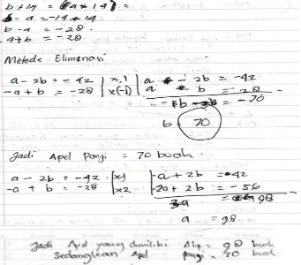 b + 14 = (a + 14)
b - a = -14 + 14
b - a = -28
a + b = -28
Metode Eliminasi
a - 2b = -42 | x1 | a - 2b = -42
-a + b = -28 | x(-1) | a b = 28
-b = -70
b 70
Jadi Apel Panji = 70 buah
a - 2b = -42 | x1 | -a + 2b = -42
-a + b = -28 | x2 | -2a + 2b = -56
= 98
a = 98
Jadi Apel yang dimiliki 98 buah
Sedangkan Apel Panji 70 buah